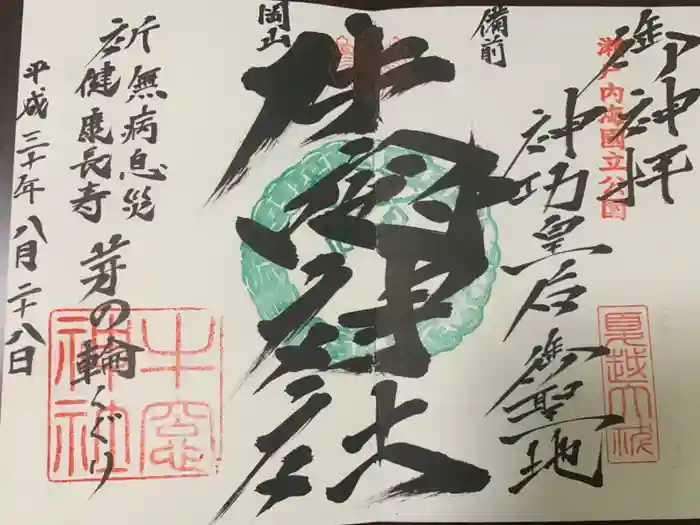 御神拝
瀬戸内海國立公園
神功皇后御聖地
備前
岡山
牛窓神社
祈
無病息災
健康長寿
茅の輪くぐり
牛窓神社
平成三十年八月二十八日